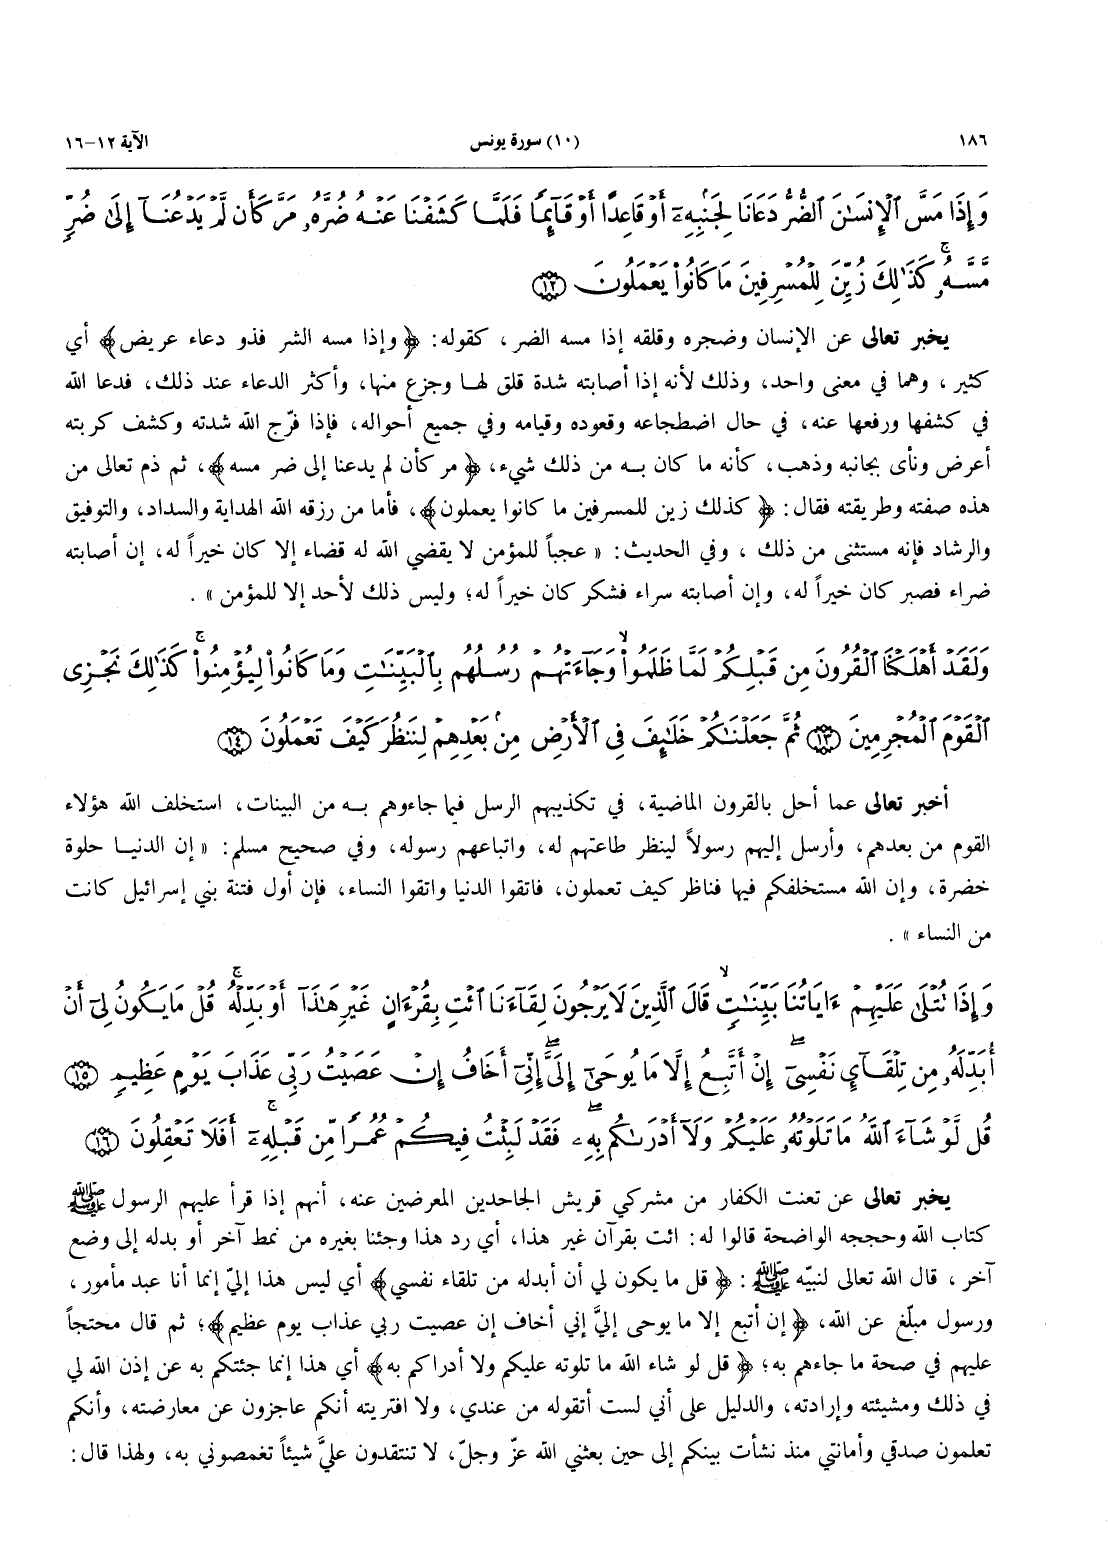 ١٨٦
(١٠) سورة يونس
الآية ١٢-١٦
وَإِذَا مَسَّ ٱلْإِنسَٰنَ ٱلضُّرُّ دَعَانَا لِجَنۢبِهِۦٓ أَوْ قَاعِدًا أَوْ قَآئِمًا فَلَمَّا كَشَفْنَا عَنْهُ ضُرَّهُۥ مَرَّ كَأَن لَّمْ يَدْعُنَآ إِلَىٰ ضُرٍّ
مَّسَّهُۥ ۚ كَذَٰلِكَ زُيِّنَ لِلْمُسْرِفِينَ مَا كَانُوا۟ يَعْمَلُونَ ١٢
يخبر تعالى عن الإنسان وضجره وقلقه إذا مسه الضر، كقوله: ﴿وإذا مسه الشر فذو دعاء عريض﴾ أي
كثير، وهما في معنى واحد، وذلك لأنه إذا أصابته شدة قلق لهـا وجزع منها، وأكثر الدعاء عند ذلك، فدعا الله
في كشفها ورفعها عنه، في حال اضطجاعه وقعوده وقيامه وفي جميع أحواله، فإذا فرّج الله شدته وكشف كربته
أعرض ونأى بجانبه وذهب، كأنه ما كان بـه من ذلك شيء، ﴿مر كأن لم يدعنا إلى ضر مسه﴾، ثم ذم تعالى من
هذه صفته وطريقته فقال: ﴿كذلك زين للمسرفين ما كانوا يعملون﴾، فأما من رزقه الله الهداية والسداد، والتوفيق
والرشاد فإنه مستثنى من ذلك ، وفي الحديث: « عجباً للمؤمن لا يقضي الله له قضاء إلا كان خيراً له، إن أصابته
ضراء فصبر كان خيراً له، وإن أصابته سراء فشكر كان خيراً له؛ وليس ذلك لأحد إلا للمؤمن » .
وَلَقَدْ أَهْلَكْنَا ٱلْقُرُونَ مِن قَبْلِكُمْ لَمَّا ظَلَمُوا۟ ۙ وَجَآءَتْهُمْ رُسُلُهُم بِٱلْبَيِّنَٰتِ وَمَا كَانُوا۟ لِيُؤْمِنُوا۟ ۚ كَذَٰلِكَ نَجْزِى
ٱلْقَوْمَ ٱلْمُجْرِمِينَ ١٣ ثُمَّ جَعَلْنَٰكُمْ خَلَٰٓئِفَ فِى ٱلْأَرْضِ مِنۢ بَعْدِهِمْ لِنَنظُرَ كَيْفَ تَعْمَلُونَ ١٤
أخبر تعالى عما أحل بالقرون الماضية، في تكذيبهم الرسل فيما جاءوهم بـه من البينات، استخلف الله هؤلاء
القوم من بعدهم، وأرسل إليهم رسولاً لينظر طاعتهم له، واتباعهم رسوله، وفي صحيح مسلم: « إن الدنيـا حلوة
خضرة، وإن الله مستخلفكم فيها فناظر كيف تعملون، فاتقوا الدنيا واتقوا النساء، فإن أول فتنة بني إسرائيل كانت
من النساء » .
وَإِذَا تُتْلَىٰ عَلَيْهِمْ ءَايَاتُنَا بَيِّنَٰتٍ ۙ قَالَ ٱلَّذِينَ لَا يَرْجُونَ لِقَآءَنَا ٱئْتِ بِقُرْءَانٍ غَيْرِ هَٰذَآ أَوْ بَدِّلْهُ ۚ قُلْ مَا يَكُونُ لِىٓ أَنْ
أُبَدِّلَهُۥ مِن تِلْقَآئِ نَفْسِىٓ ۖ إِنْ أَتَّبِعُ إِلَّا مَا يُوحَىٰٓ إِلَىَّ ۖ إِنِّىٓ أَخَافُ إِنْ عَصَيْتُ رَبِّى عَذَابَ يَوْمٍ عَظِيمٍ ١٥
قُل لَّوْ شَآءَ ٱللَّهُ مَا تَلَوْتُهُۥ عَلَيْكُمْ وَلَآ أَدْرَىٰكُم بِهِۦ ۖ فَقَدْ لَبِثْتُ فِيكُمْ عُمُرًا مِّن قَبْلِهِۦٓ ۚ أَفَلَا تَعْقِلُونَ ١٦
يخبر تعالى عن تعنت الكفار من مشركي قريش الجاحدين المعرضين عنه، أنهم إذا قرأ عليهم الرسول ﷺ
كتاب الله وحججه الواضحة قالوا له: ائت بقرآن غير هذا، أي رد هذا وجئنا بغيره من نمط آخر أو بدله إلى وضع
آخر، قال الله تعالى لنبيّه ﷺ : ﴿قل ما يكون لي أن أبدله من تلقاء نفسي﴾ أي ليس هذا إليّ إنما أنا عبد مأمور،
ورسول مبلّغ عن الله، ﴿إن أتبع إلا ما يوحى إليَّ إني أخاف إن عصيت ربي عذاب يوم عظيم﴾؛ ثم قال محتجاً
عليهم في صحة ما جاءهم به؛ ﴿قل لو شاء الله ما تلوته عليكم ولا أدراكم به﴾ أي هذا إنما جئتكم به عن إذن الله لي
في ذلك ومشيئته وإرادته، والدليل على أني لست أتقوله من عندي، ولا افتريته أنكم عاجزون عن معارضته، وأنكم
تعلمون صدقي وأمانتي منذ نشأت بينكم إلى حين بعثني الله عزّ وجلّ، لا تنتقدون عليَّ شيئاً تغمصوني به، ولهذا قال: